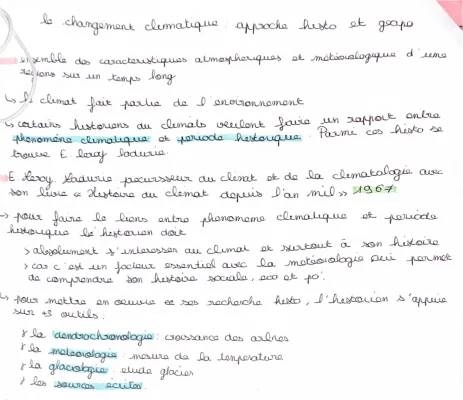 le changement climatique : approche histo et géopo
ensemble des caracteristiques atmospheriques et météorologique d'une
régions sur un temps long
↳ le climat fait partie de l'environnement
↳ certains historiens du climats veulent faire un rapport entre
phenomène climatique et periode historique. Parmi ces histo se
trouve E. leroy ladurie.
E. Leroy Ladurie precursseur du climat et de la climatologie avec
son livre « Histoire du climat depuis l'an mil » 1967
→ pour faire le liens entre phenomene climatique et periode
historique le historien doit
> absolument s'interesser au climat et surtout à son histoire
> car c'est un facteur essentiel avec la météorologie qui permet
de comprendre son histoire sociale, eco et po'.
↳ pour mettre en oeuvre ses recherche histo, l'historien s'appuie
sur +s outils :
la dendrochronologie : croissance des arbres
la meteorologie : mesure de la temperature
la glaciologie : etude glacier
les sources ecrites.